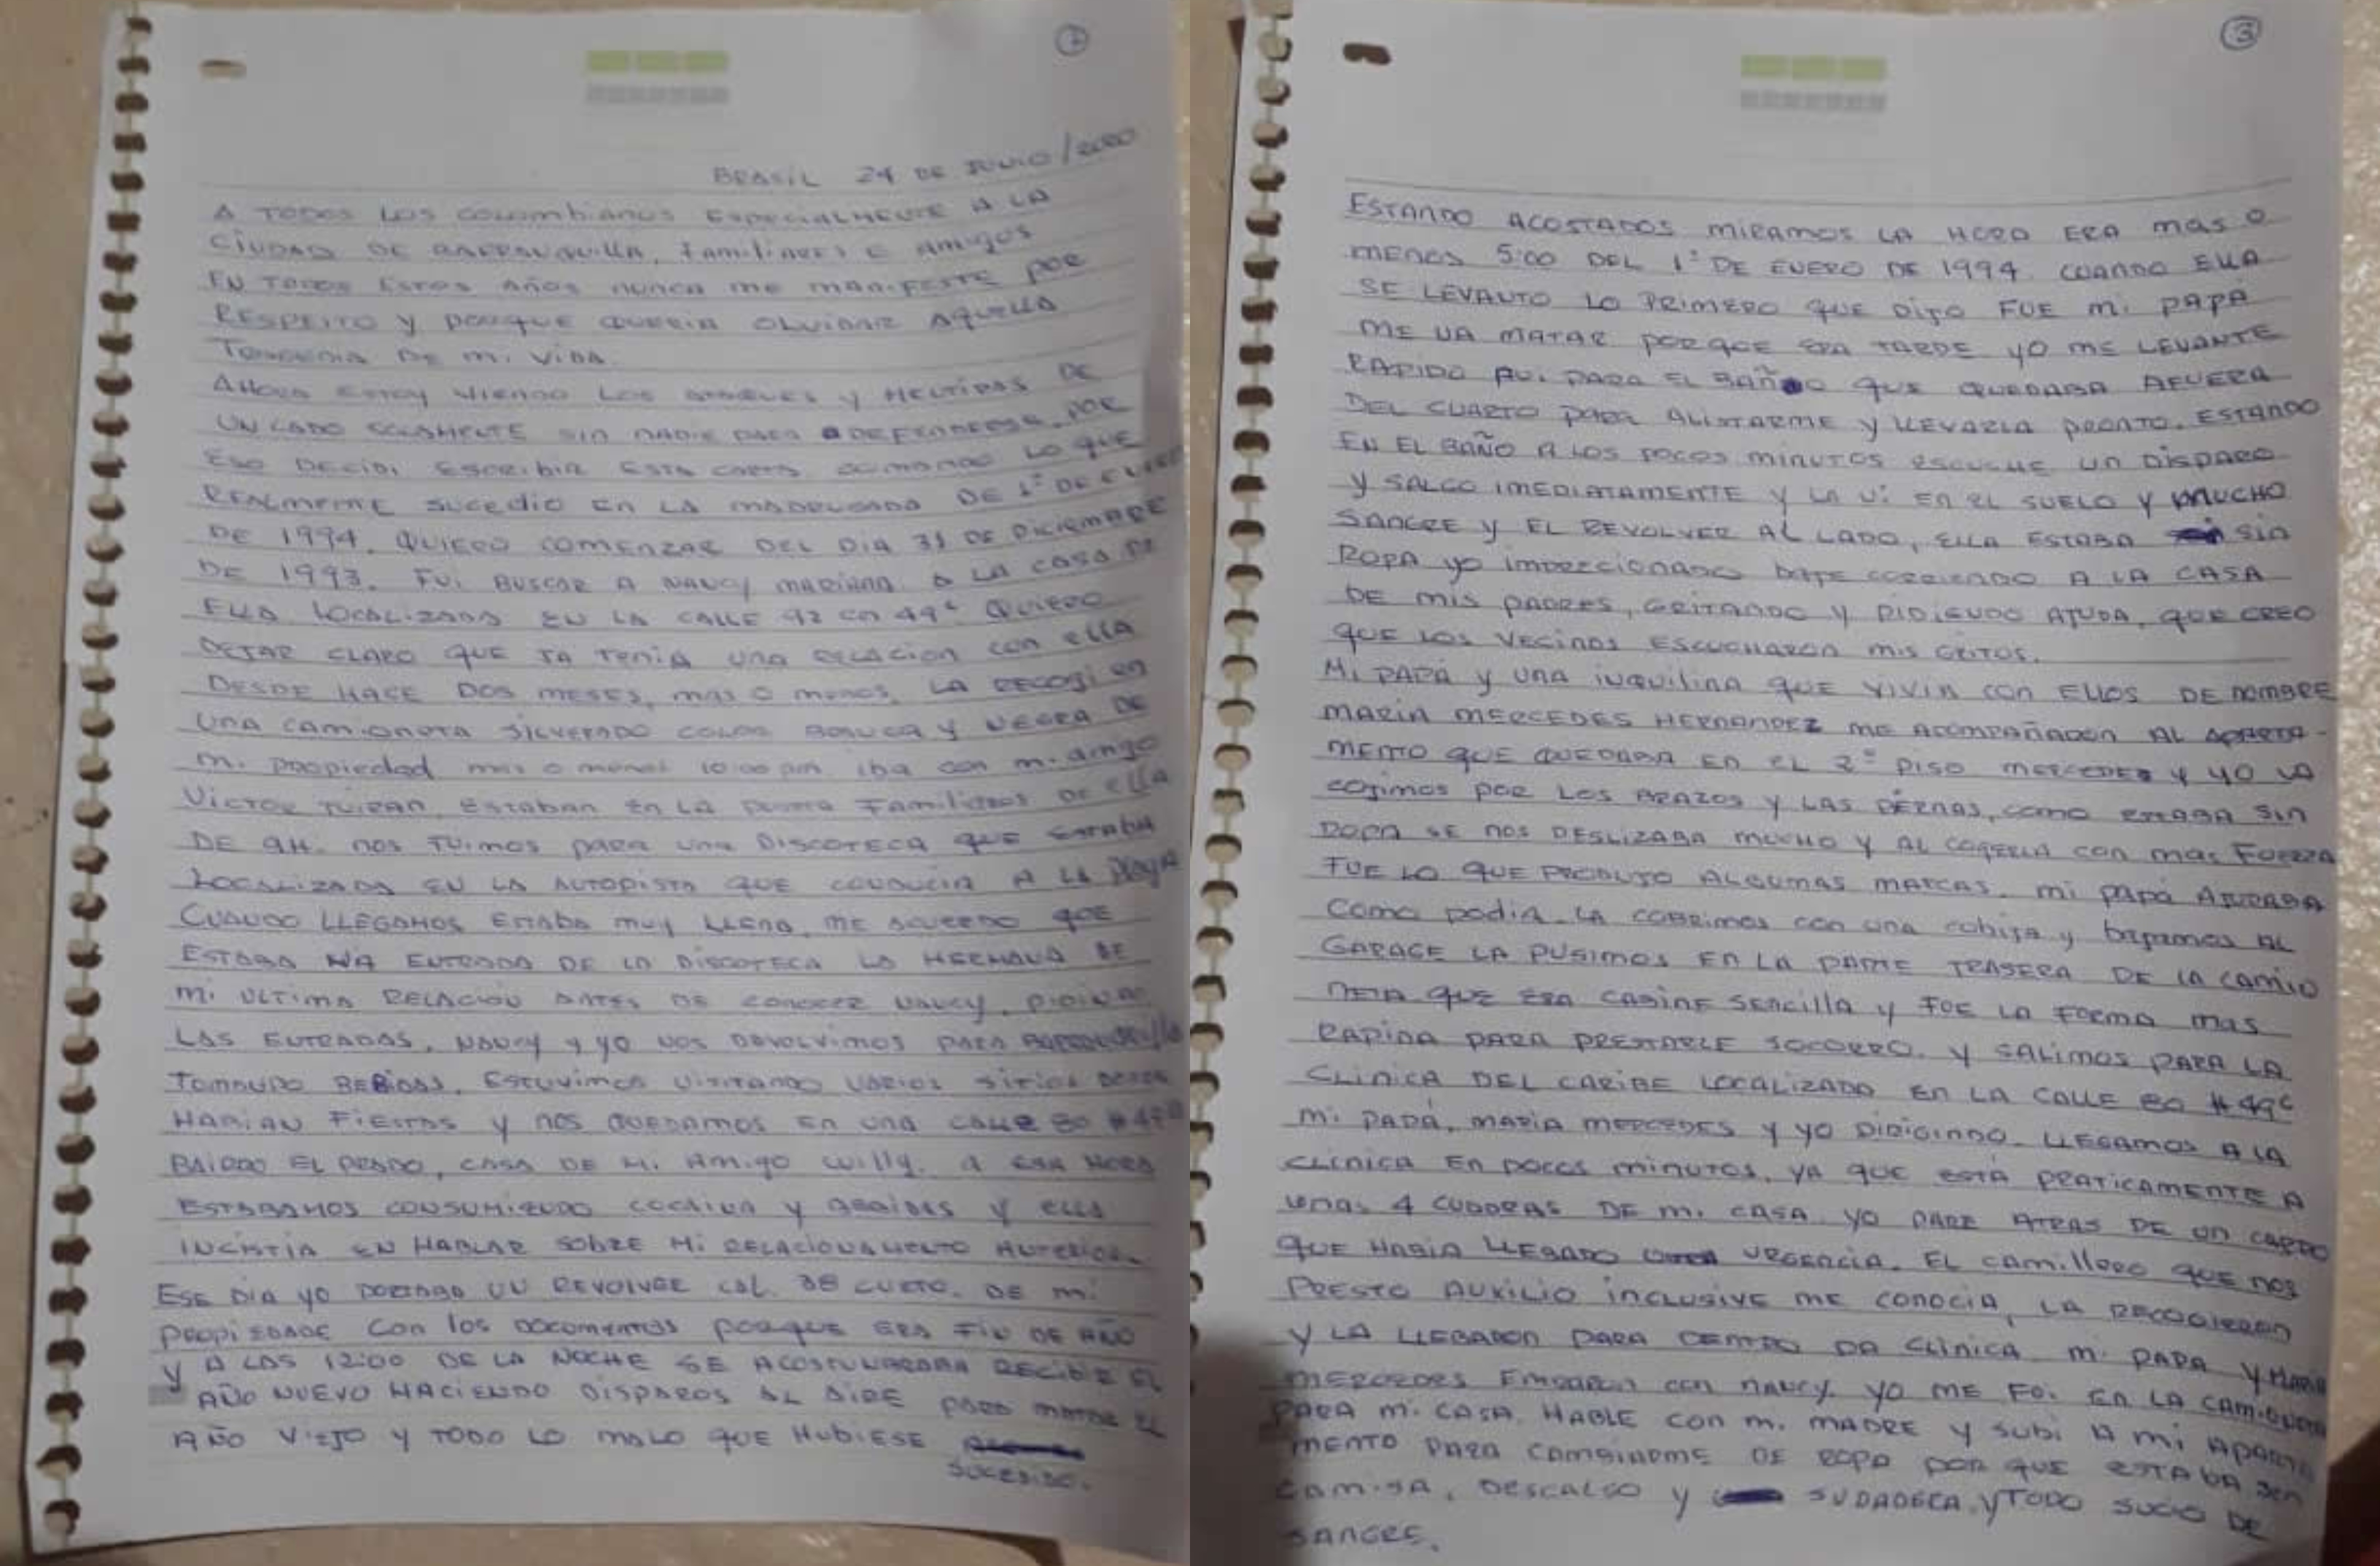 1
BRASIL 24 DE JUNIO/2020
A TODOS LOS COLOMBIANOS ESPECIALMENTE A LA
CIUDAD DE BARRANQUILLA, FAMILIARES E AMIGOS
EN TODOS ESTOS AÑOS NUNCA ME MANIFESTE POR
RESPEITO Y PORQUE QUERIA OLVIDAR AQUELLA
TRAGEDIA DE MI VIDA.
AHORA ESTOY VIENDO LOS ATAQUES Y MENTIRAS DE
UN LADO SOLAMENTE SIN NADIE PARA DEFENDERSE, POR
ESO DECIDI ESCRIBIR ESTA CARTA LO QUE
REALMENTE SUCEDIO EN LA MADRUGADA DE 1° DE ENERO
DE 1994. QUIERO COMENZAR DEL DIA 31 DE DICIEMBRE
DE 1993. FUI BUSCAR A NANCY MARIANA A LA CASA DE
ELLA LOCALIZADA EN LA CALLE 92 CO 49C QUIERO
DEJAR CLARO QUE JA TENIA UNA RELACION CON ELLA
DESDE HACE DOS MESES, MAS O MENOS. LA RECOGI EN
UNA CAMIONETA SILVERADO COLOR BRANCA Y NEGRA DE
MI PROPIEDAD MAS O MENOS 10:00 PM IBA CON MI AMIGO
VICTOR TUIRAN, ESTABAN EN LA PUERTA FAMILIARES DE ELLA
DE AHI NOS FUIMOS PARA UNA DISCOTECA QUE ESTABA
LOCALIZADA EN LA AUTOPISTA QUE CONDUCIA A LA PLAYA
CUANDO LLEGAMOS ESTABA MUY LLENA, ME ACUERDO QUE
ESTABA NA ENTRADA DE LA DISCOTECA LA HERMANA DE
MI ULTIMA RELACION ANTES DE CONOCER NANCY, PIDIENDO
LAS ENTRADAS, NANCY Y YO NOS DEVOLVIMOS PARA BARRANQUILLA
TOMANDO BEBIDAS, ESTUVIMOS VISITANDO VARIOS SITIOS DONDE
HABIAN FIESTAS Y NOS QUEDAMOS EN UNA CALLE 80
BAIRRO EL PRADO, CASA DE MI AMIGO WILLY. A ESA HORA
ESTABAMOS CONSUMIENDO COCAINA Y BEBIDAS Y ELLA
INCISTIA EN HABLAR SOBRE MI RELACIONAMENTO ANTERIOR.
ESE DIA YO PORTABA UN REVOLVER CAL. 38 CURTO. DE MI
PROPIEDADE CON LOS DOCUMENTOS PORQUE ERA FIN DE AÑO
Y A LAS 12:00 DE LA NOCHE SE ACOSTUNBRABA RECIBIR EL
AÑO NUEVO HACIENDO DISPAROS AL AIRE PARA MATAR EL
AÑO VIEJO Y TODO LO MALO QUE HUBIESE
SUCEDIDO.
3
ESTANDO ACOSTADOS MIRAMOS LA HORA ERA MAS O
MENOS 5:00 DEL 1° DE ENERO DE 1994. CUANDO ELLA
SE LEVANTO LO PRIMERO QUE DIJO FUE MI PAPÁ
ME VA MATAR PORQUE ERA TARDE YO ME LEVANTE
RAPIDO FUI PARA EL BAÑO QUE QUEDABA AFUERA
DEL CUARTO PARA ALISTARME Y LLEVARLA PRONTO. ESTANDO
EN EL BAÑO A LOS POCOS MINUTOS ESCUCHE UN DISPARO
Y SALGO IMEDIATAMENTE Y LA VI EN EL SUELO Y MUCHO
SANGRE Y EL REVOLVER AL LADO, ELLA ESTABA SIN
ROPA YO IMPRECIONADO BAJE CORRIENDO A LA CASA
DE MIS PADRES, GRITANDO Y PIDIENDO AJUDA, QUE CREO
QUE LOS VECINOS ESCUCHARON MIS GRITOS.
MI PAPÁ Y UNA INQUILINA QUE VIVIA CON ELLOS DE NOMBRE
MARIA MERCEDES HERNANDEZ ME ACOMPAÑARON AL APARTA-
MENTO QUE QUEDABA EN EL 2° PISO MERCEDES Y YO LA
COJIMOS POR LOS BRAZOS Y LAS PERNAS, COMO ESTABA SIN
ROPA SE NOS DESLIZABA MUCHO Y AL COGERLA CON MAS FUERZA
FUE LO QUE PRODUJO ALGUMAS MARCAS. MI PAPÁ AJUDABA
COMO PODIA. LA COBRIMOS CON UNA COBIJA Y BAJAMOS AL
GARAGE LA PUSIMOS EN LA PARTE TRASERA DE LA CAMIO
NETA QUE ERA CABINE SENCILLA Y FOE LA FORMA MAS
RAPIDA PARA PRESTARLE SOCORRO. Y SALIMOS PARA LA
CLINICA DEL CARIBE LOCALIZADA EN LA CALLE 80 # 49C
MI PAPÁ, MARIA MERCEDES Y YO DIRIGINDO. LLEGAMOS A LA
CLINICA EN POCOS MINUTOS, YA QUE ESTÁ PRATICAMENTE A
UNAS 4 CUADRAS DE MI CASA YO PARE ATRAS DE UN CARRO
QUE HABIA LLEGADO URGENCIA. EL CAMILLERO QUE NOS
PRESTO AUXILIO INCLUSIVE ME CONOCIA, LA RECOGIERON
Y LA LLEBARON PARA DENTRO DA CLINICA MI PAPA Y MARIA
MERCEDES CON NANCY. YO ME FOI EN LA CAMIONETA
PARA MI CASA. HABLE CON MI MADRE Y SUBI A MI APARTA
MENTO PARA CAMBIARME DE ROPA POR QUE ESTABA SEN
CAMISA, DESCALSO Y SUDADERA, Y TODO SUCIO DE
SANGRE.